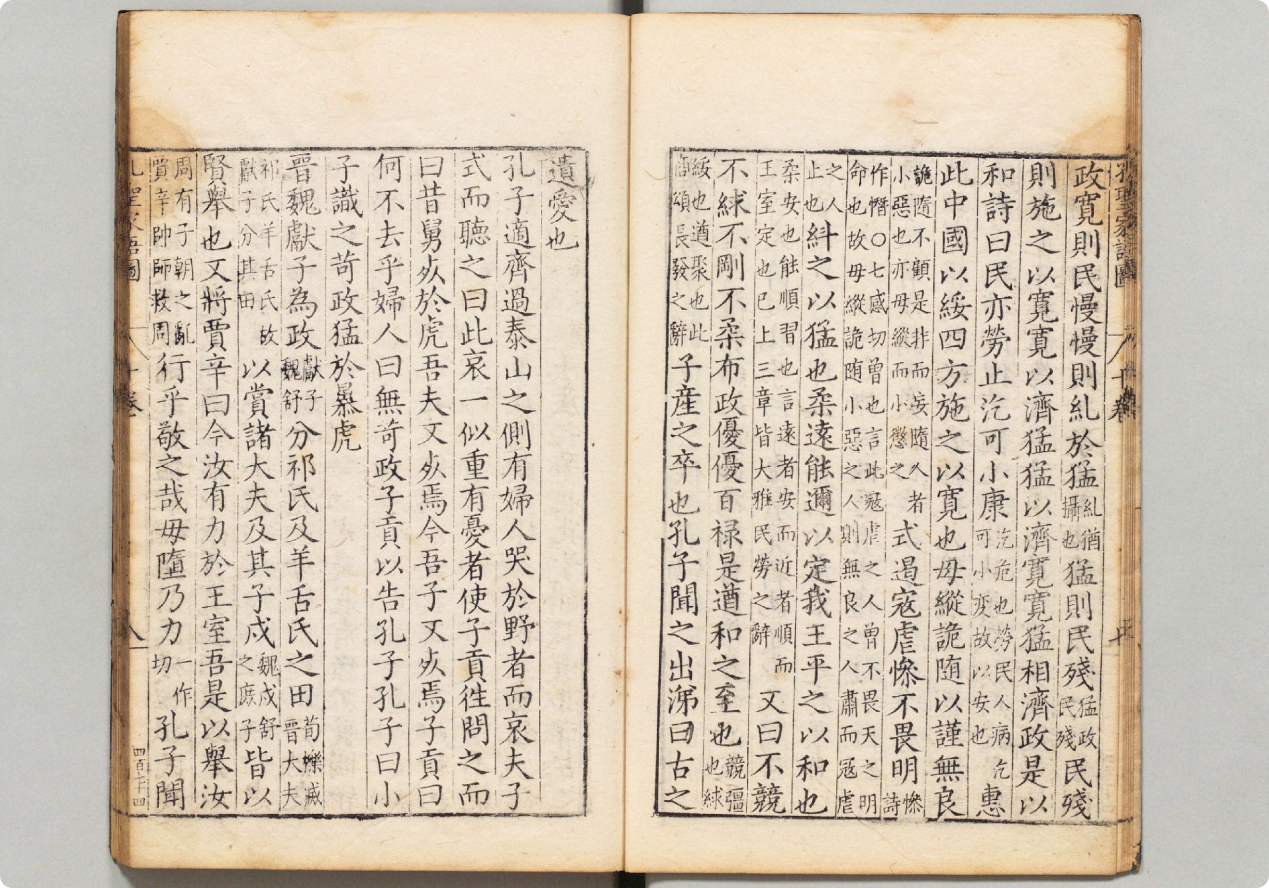 孔聖家語圖 八 十卷
政寬則民慢慢則糺於猛糺猶攝也猛則民殘猛政民殘民殘
則施之以寬寬以濟猛猛以濟寬寬猛相濟政是以
和詩曰民亦勞止汔可小康汔危也勞民人病汔可小変故以安也惠
此中國以綏四方施之以寬也毋縱詭随以謹無良
詭隨不顧是非而妄隨人者小惡也亦毋縱而小懲之式遏寇虐慘不畏明慘詩
作憯〇七感切曾也言此寇虐之人曾不畏天之明命也故毋縱詭随小惡之人則無良之人肅而寇虐
之人止也糾之以猛也柔遠能邇以定我王平之以和也
柔安也能順習也言遠者安而近者順而王室定也已上三章皆大雅民勞之辭又曰不競
不絿不剛不柔布政優優百禄是遒和之至也競彊也絿
綏也遒聚也此商頌長發之辭子產之卒也孔子聞之出涕曰古之
遺愛也
孔子適齊過泰山之側有婦人哭於野者而哀夫子
式而聽之曰此哀一似重有憂者使子貢徃問之而
曰昔舅死於虎吾夫又死焉今吾子又死焉子貢曰
何不去乎婦人曰無苛政子貢以告孔子孔子曰小
子識之苛政猛於暴虎
晉魏獻子為政獻子魏舒分祁氏及羊舌氏之田荀櫟滅晉大夫
祁氏羊舌氏故獻子分其田以賞諸大夫及其子戍魏戍舒之庶子皆以
賢舉也又將賈辛曰今汝有力於王室吾是以舉汝
周有子朝之亂賞辛帥師救周行乎敬之哉毋墮乃力一作切孔子聞
孔聖家語圖 八 十卷 四百七十四